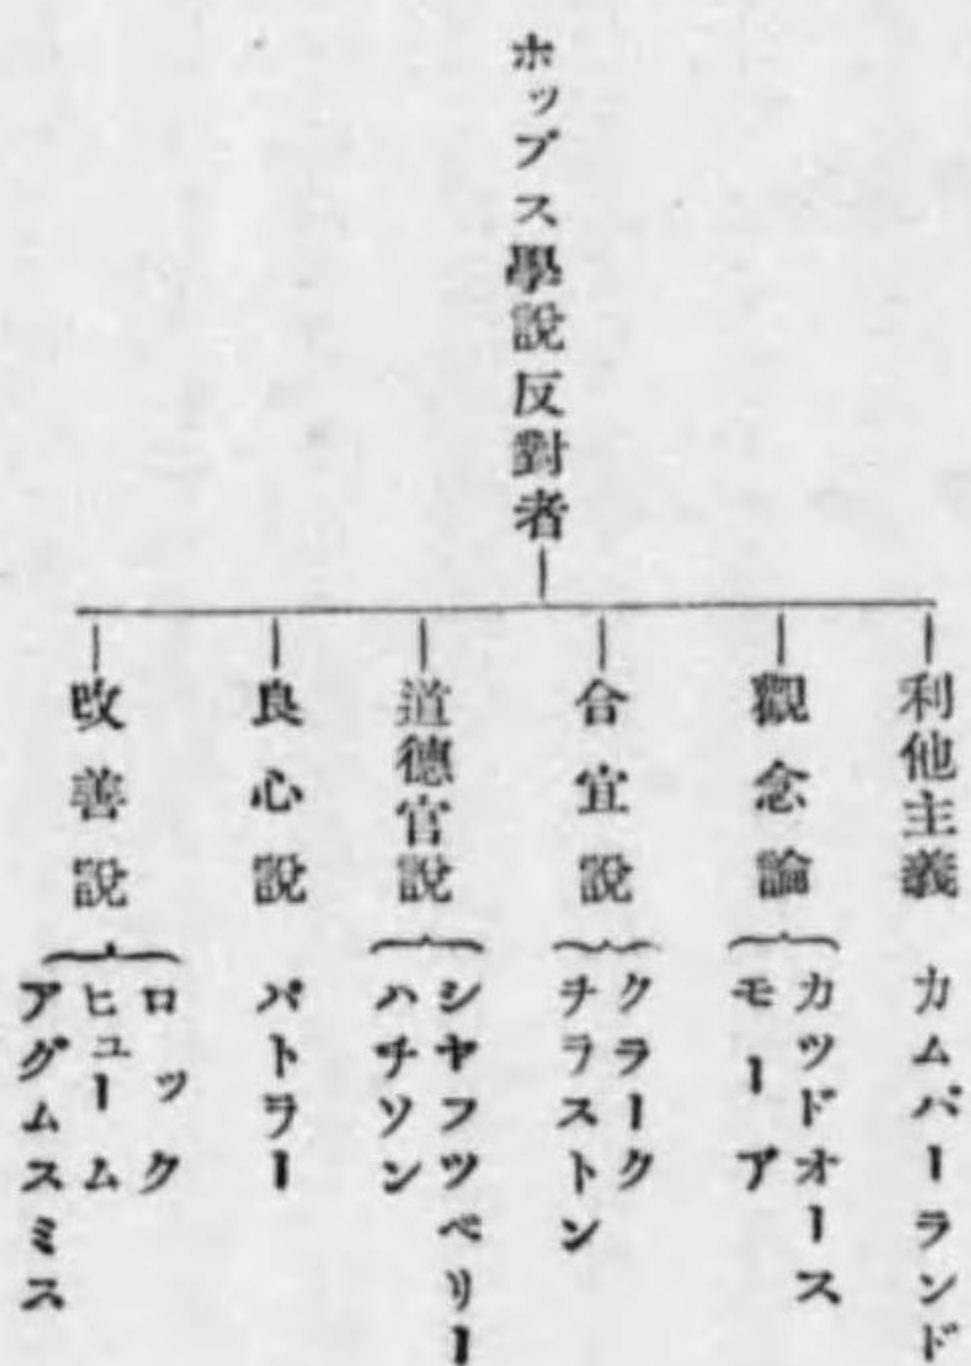 ホッブス學說反對者
利他主義 カムバーランド
觀念論
カツドオース
モーア
合宜說
クラーク
チラストン
道德官說
シヤフツベリー
ハチソン
良心說 バトラー
改善說
ロック
ヒューム
アグムスミス